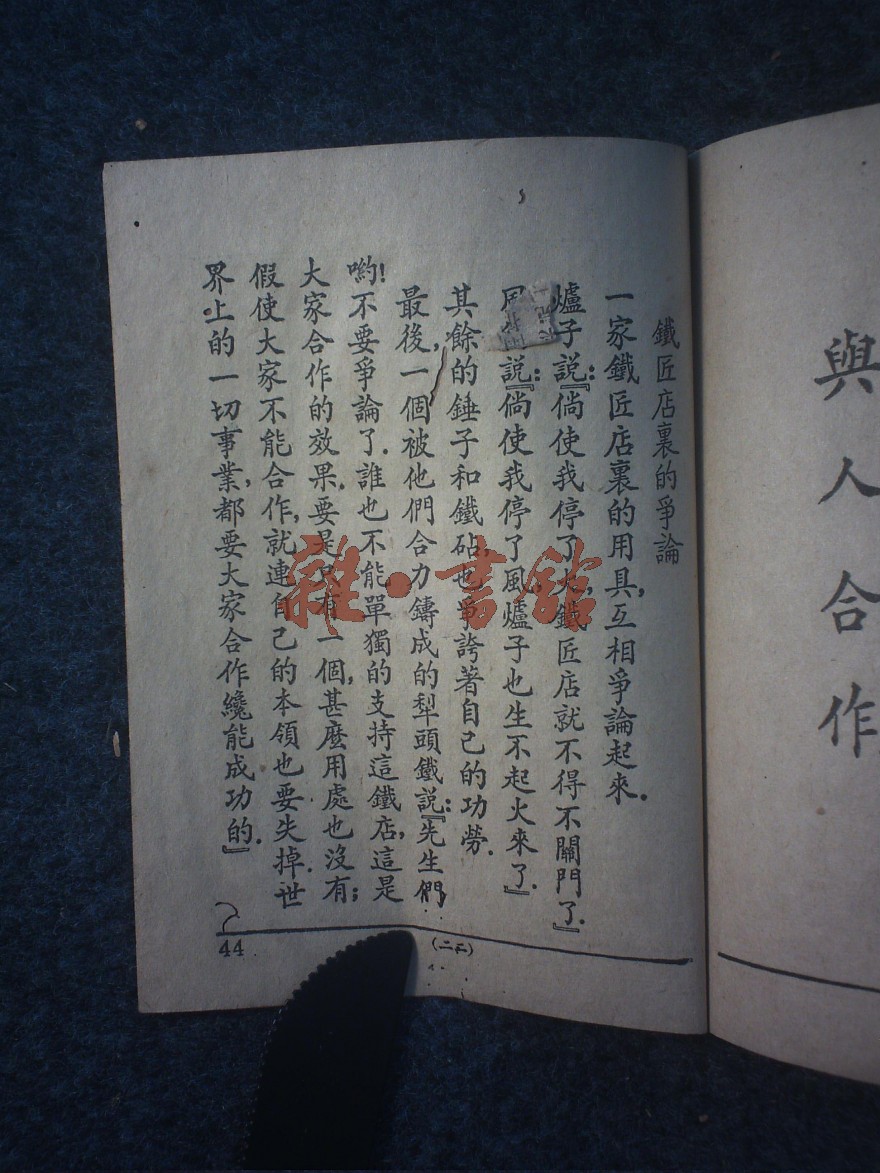 與人合作
鐵匠店裏的爭論
一家鐵匠店裏的用具,互相爭論起來.
爐子說:『倘使我停了火,鐵匠店就不得不關門了.』
說:『倘使我停了風,爐子也生不起火來了.』
其餘的錘子和鐵砧,也爭誇著自己的功勞.
最後,一個被他們合力鑄成的犁頭鐵說:『先生們
喲!不要爭論了.誰也不能單獨的支持這鐵店,這是
大家合作的效果.要是只有一個,甚麼用處也沒有;
假使大家不能合作,就連自己的本領也要失掉.世
界上的一切事業,都要大家合作纔能成功的.』
44
(二二)
雜·書館